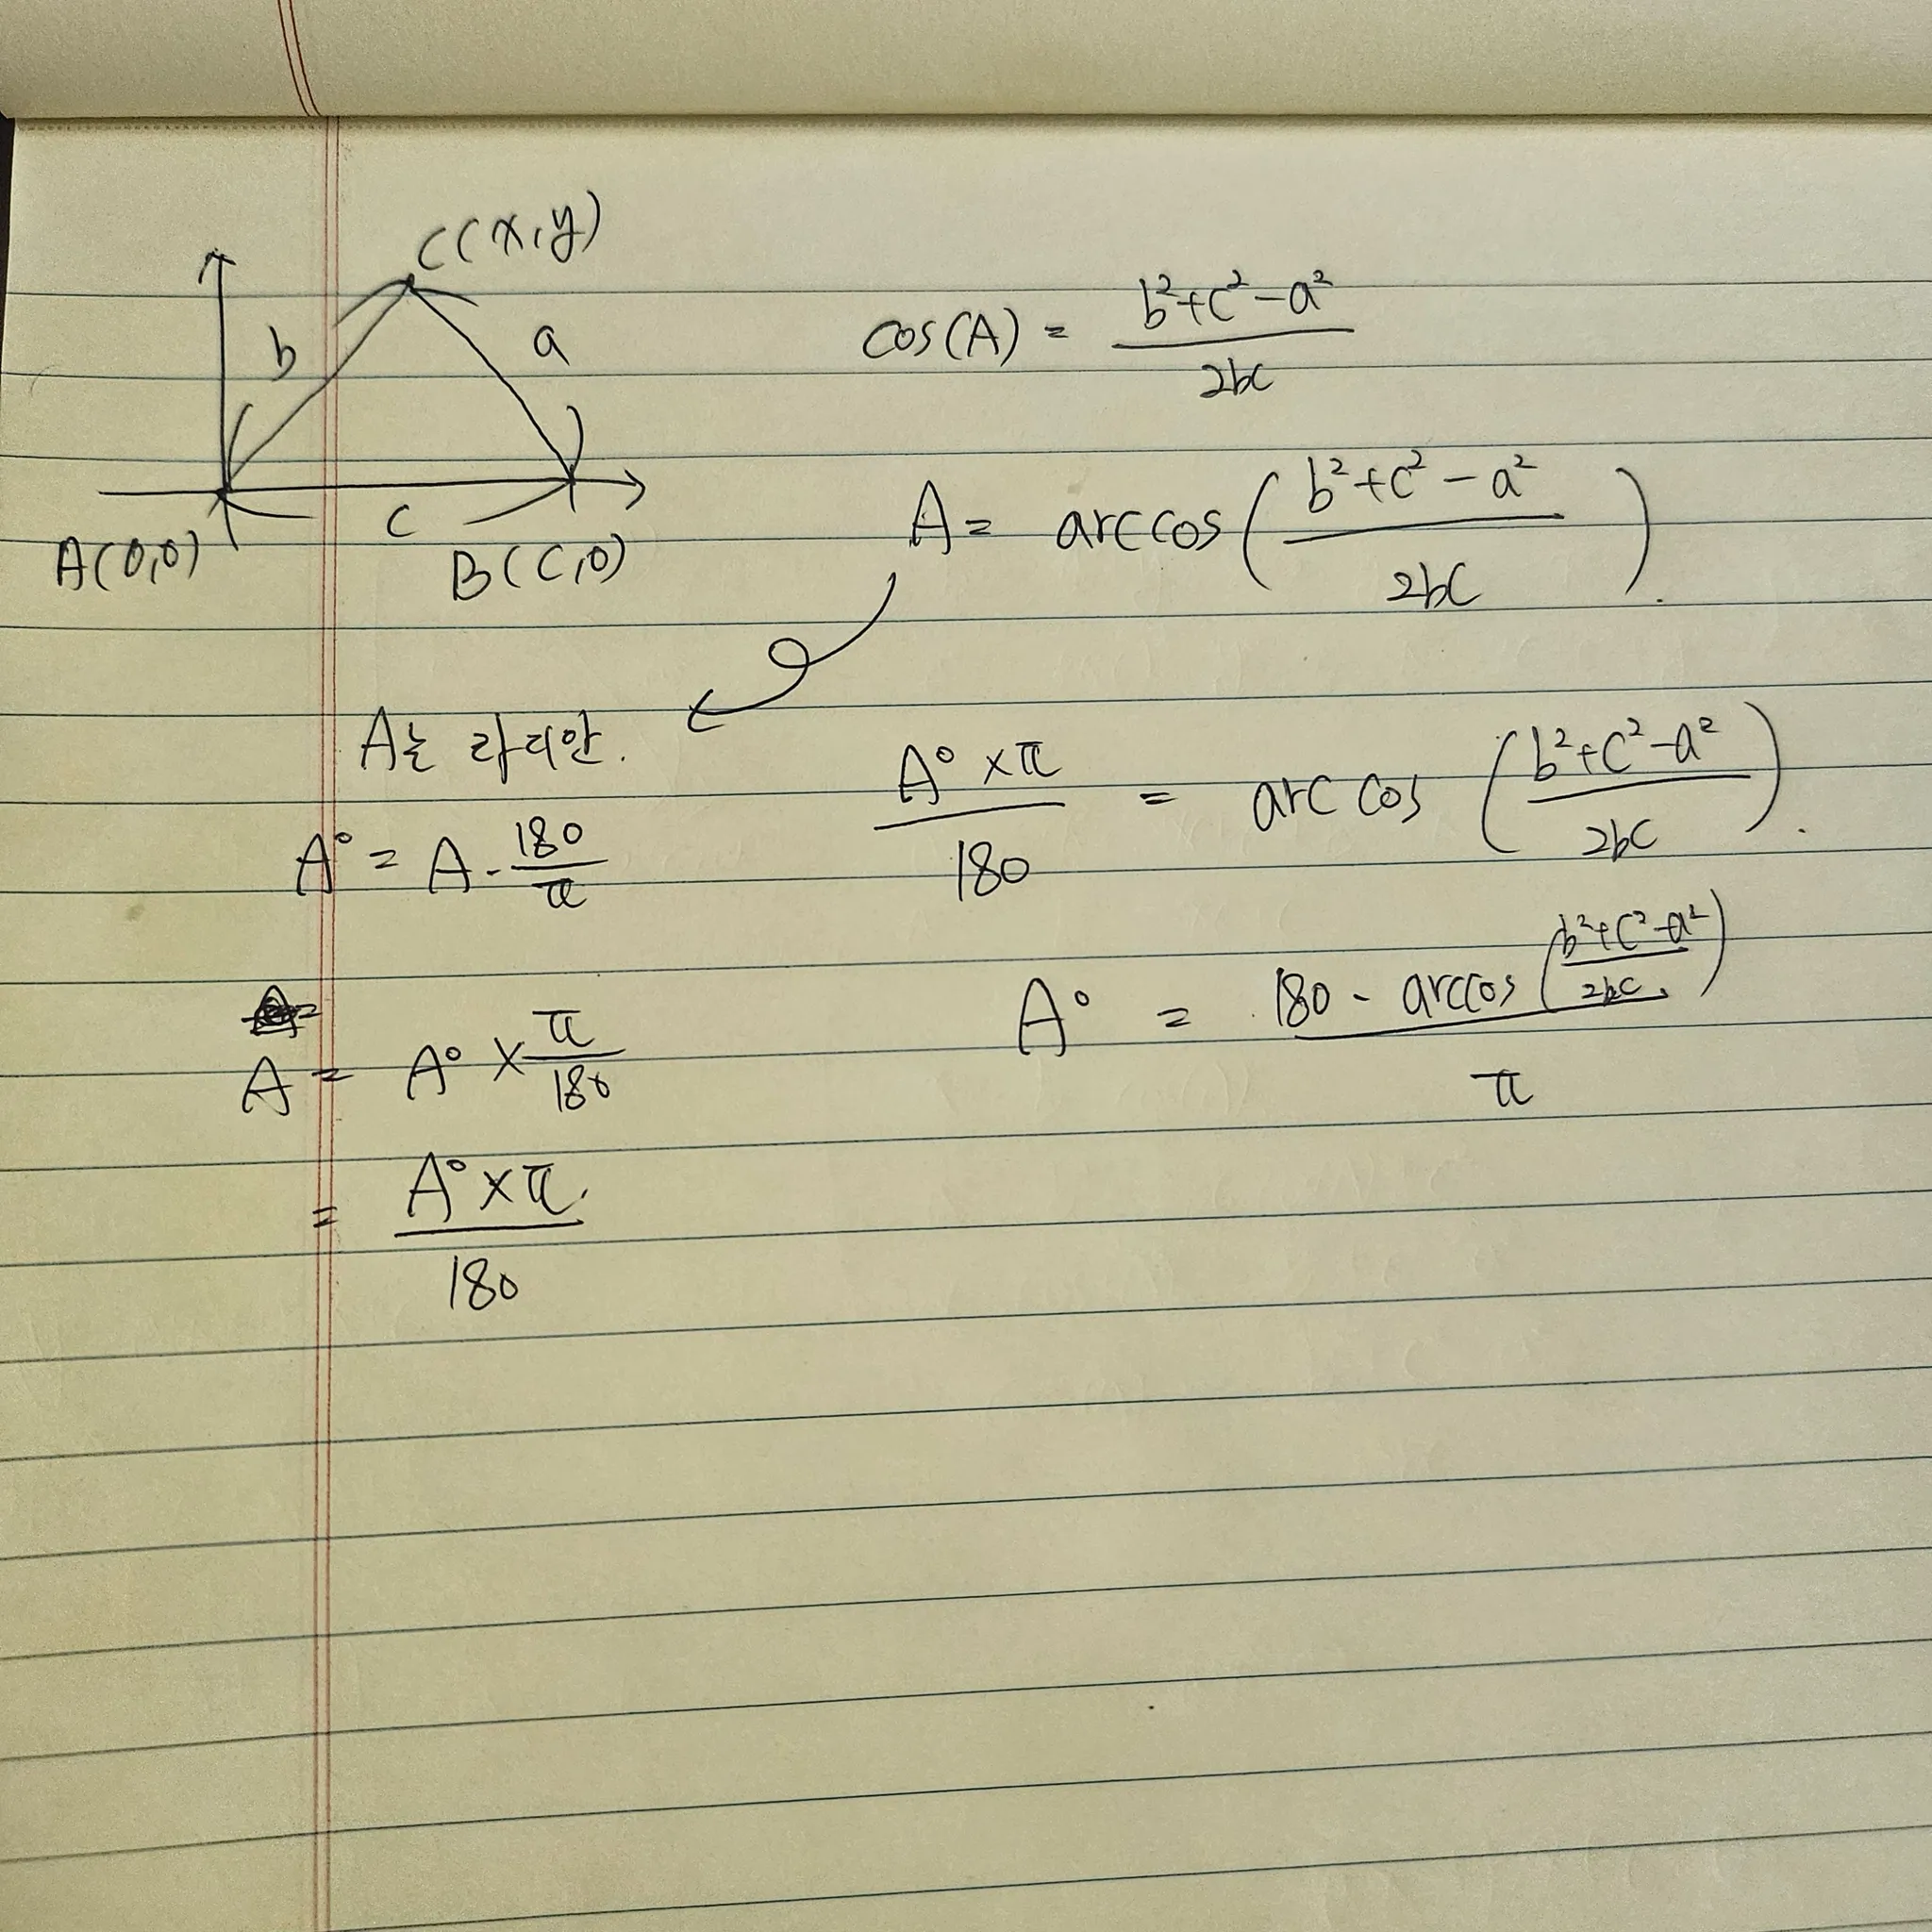 C(x,y)
b
a
c
A(0,0)
B(C,0)
cos(A) = (b²+c²-a²)/2bc
A = arccos((b²+c²-a²)/2bc).
A는 라디안.
A° = A · 180/π
A = A° × π/180
= A°×π/180
A°×π/180 = arc cos((b²+c²-a²)/2bc).
A° = 180 - arccos((b²+c²-a²)/2bc)/π